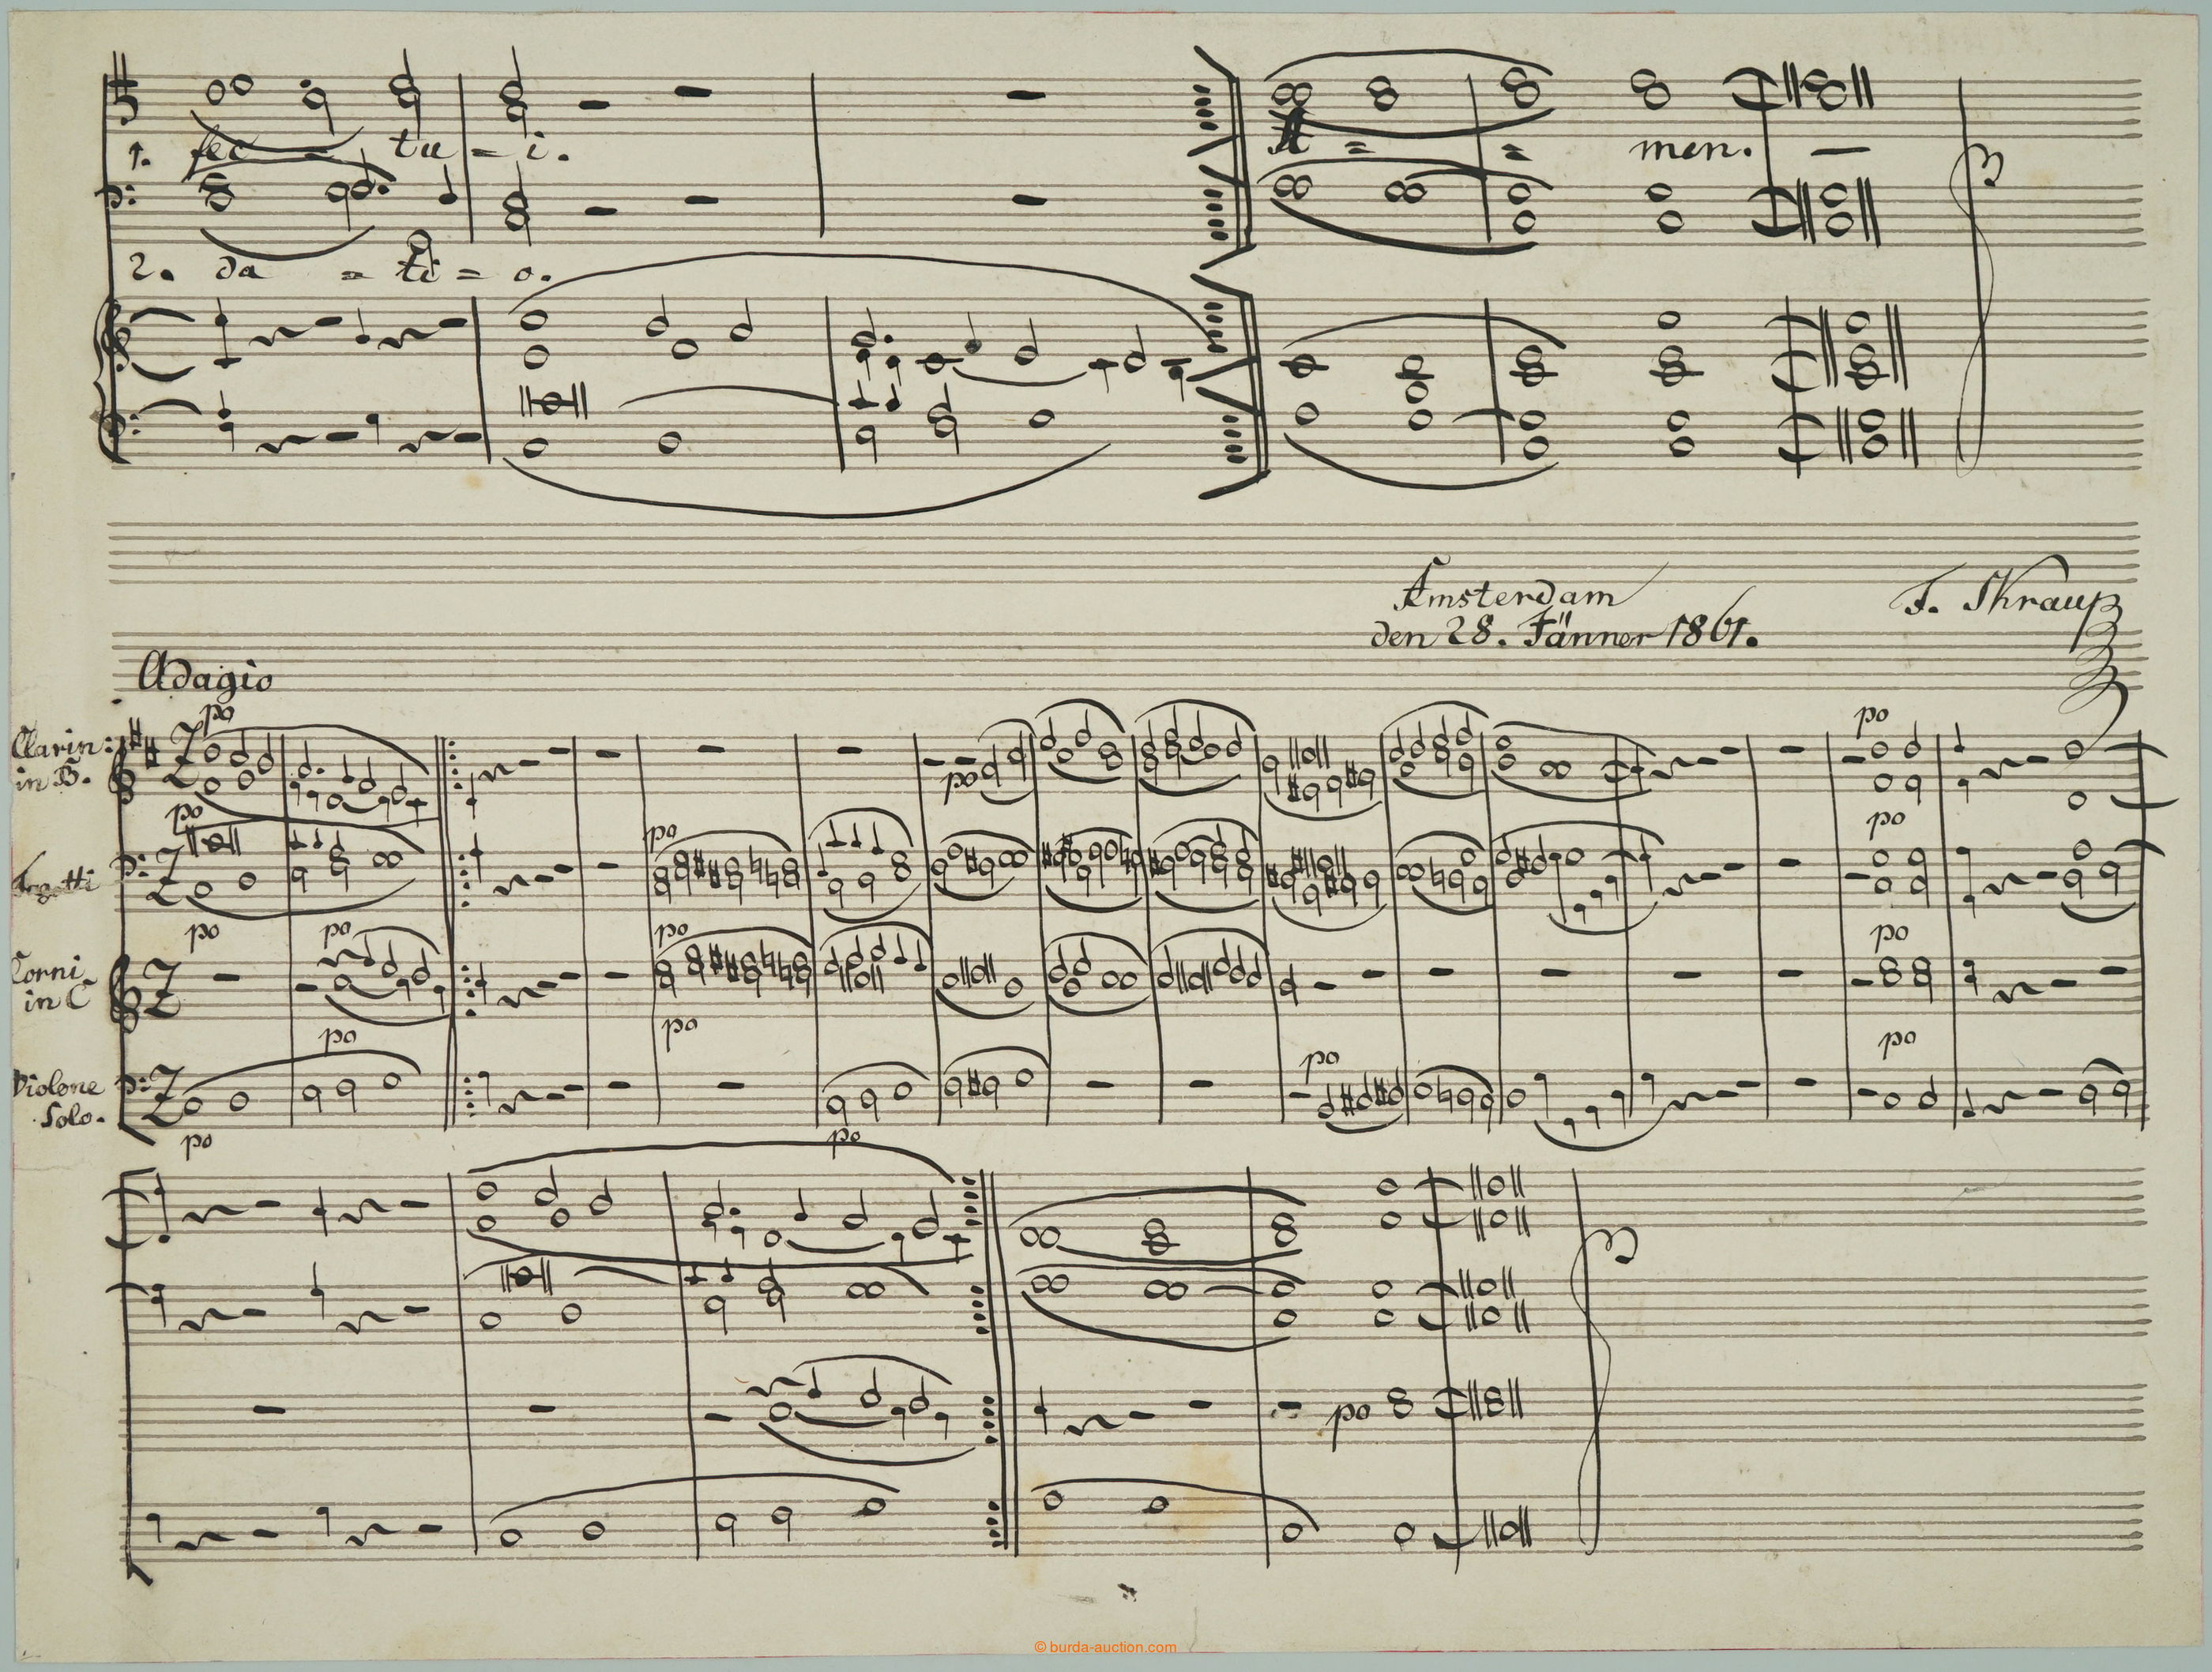 1. fec - tu = i. A = = men. —
2. da = ti = o.
Amsterdam
den 28. Jänner 1861.
F. Skraup
Adagio
po
po
Clarin:
in B.
po
po
po
Fagotti
po
po
po
po
po
Corni
in C
po
po
po
po
Violone
Solo.
po
po
po
© burda-auction.com